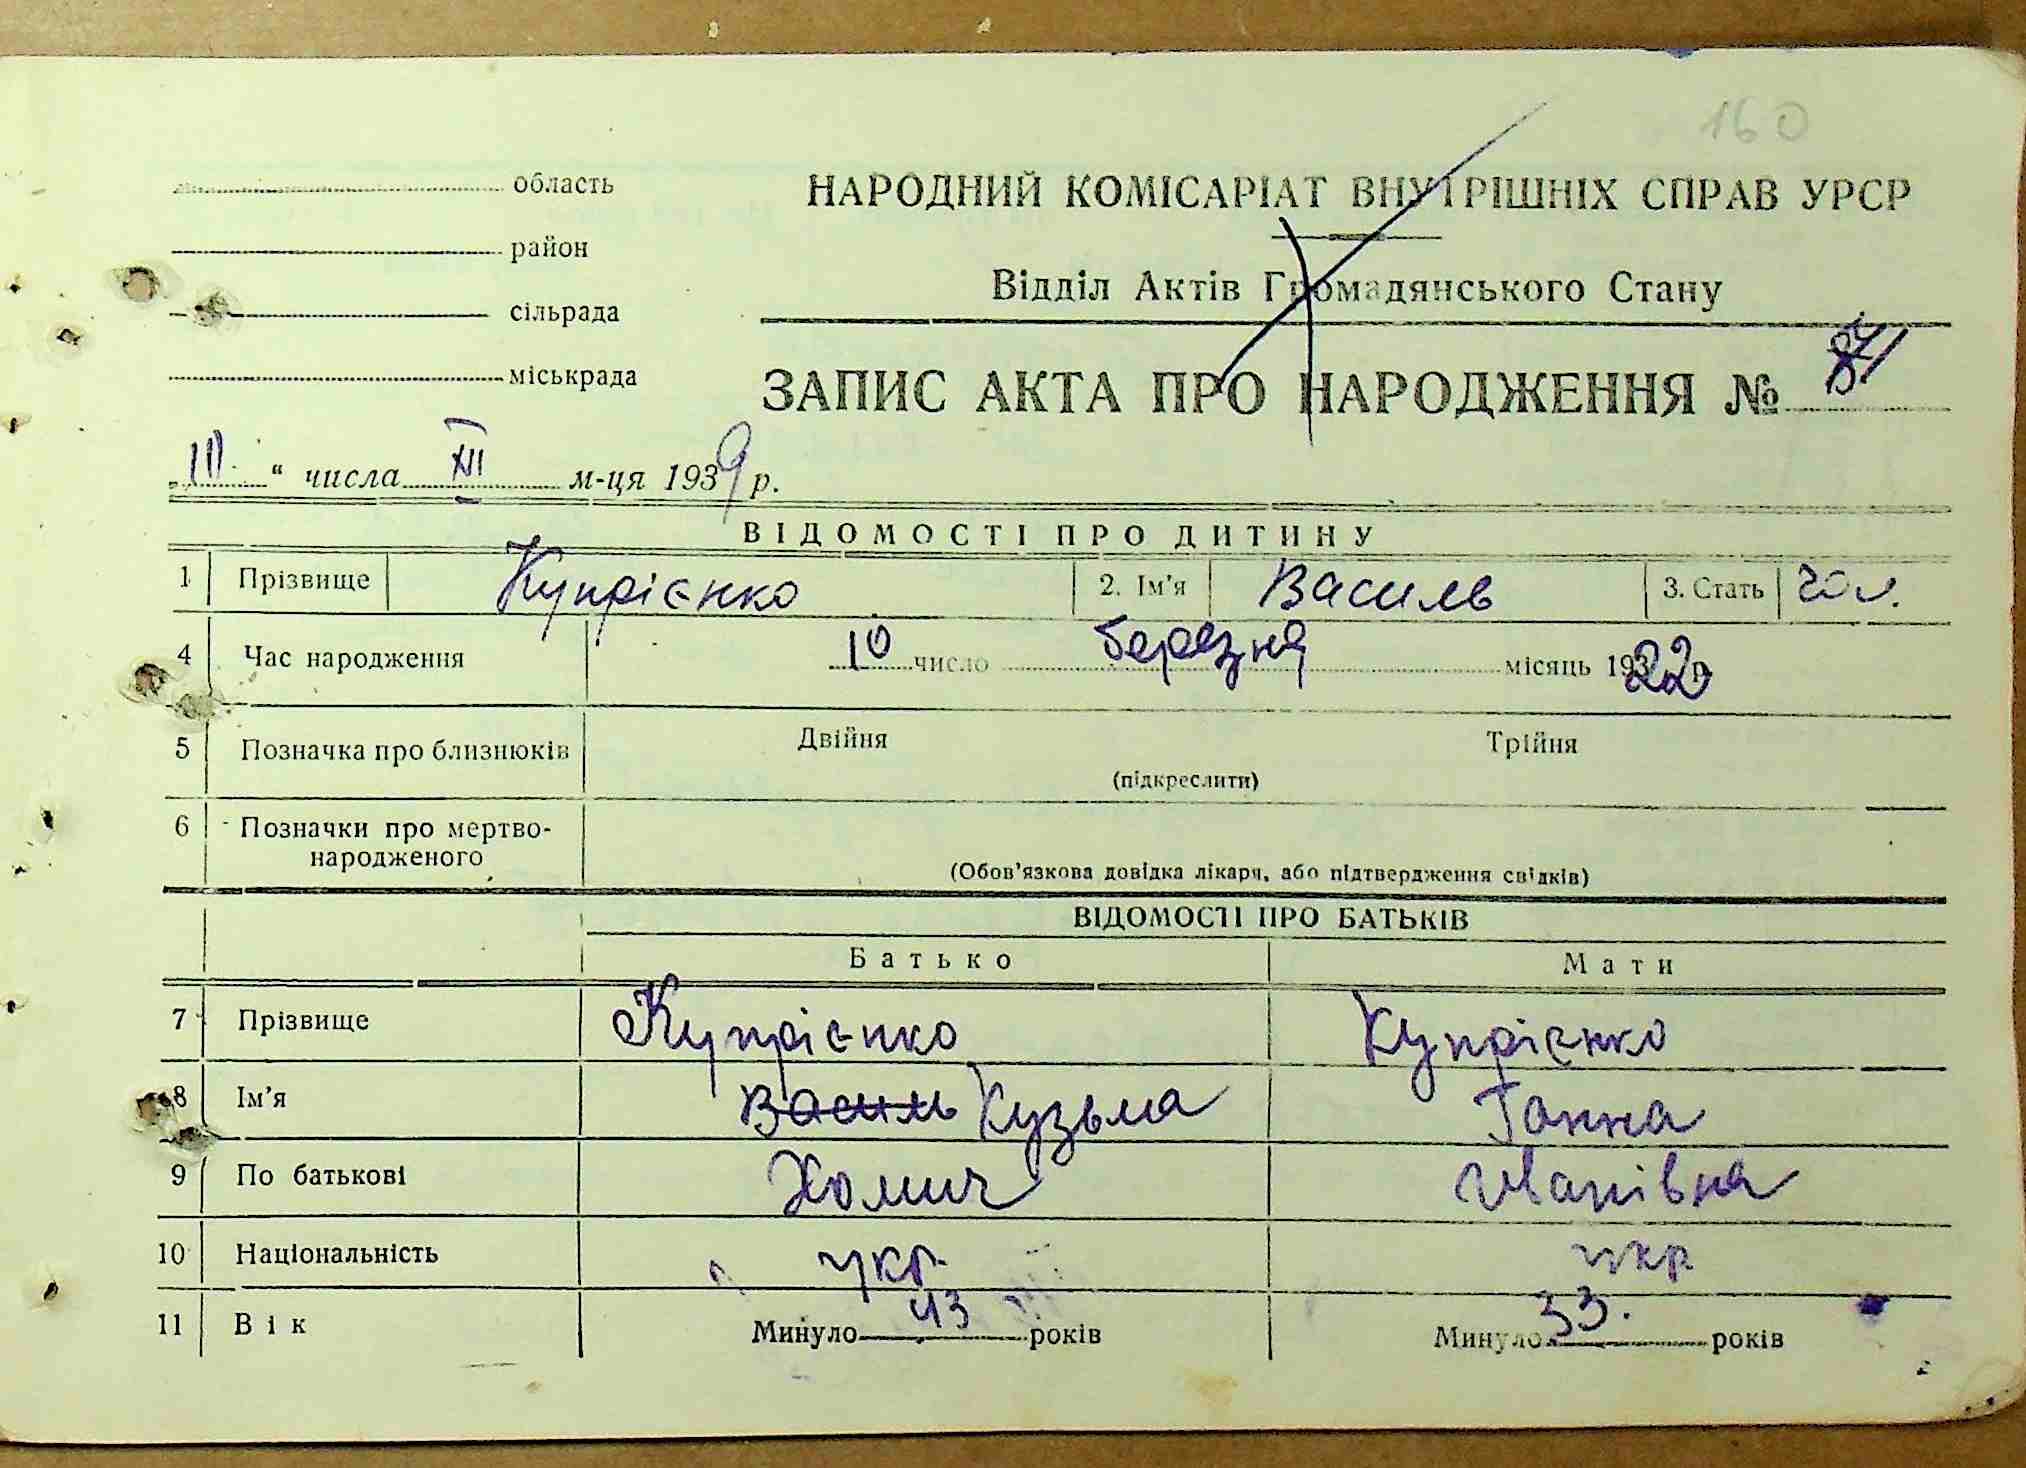 160
область
район
сільрада
міськрада
НАРОДНИЙ КОМІСАРІАТ ВНУТРІШНІХ СПРАВ УРСР
Відділ Актів Громадянського Стану
ЗАПИС АКТА ПРО НАРОДЖЕННЯ №
„ III “ числа XII м-ця 1939 р.
ВІДОМОСТІ ПРО ДИТИНУ
1 Прізвище Купрієнко 2. Ім'я Василь 3. Стать чол.
4 Час народження 10 число березня місяць 1922 р
5 Позначка про близнюків Двійня Трійня
(підкреслити)
6 Позначки про мертво-
народженого
(Обов'язкова довідка лікаря, або підтвердження свідків)
ВІДОМОСТІ ПРО БАТЬКІВ
Батько Мати
7 Прізвище Купрієнко Купрієнко
8 Ім'я Василь Кузьма Ганна
9 По батькові Хомич Иванівна
10 Національність укр. укр
11 Вік Минуло 43 років Минуло 33. років